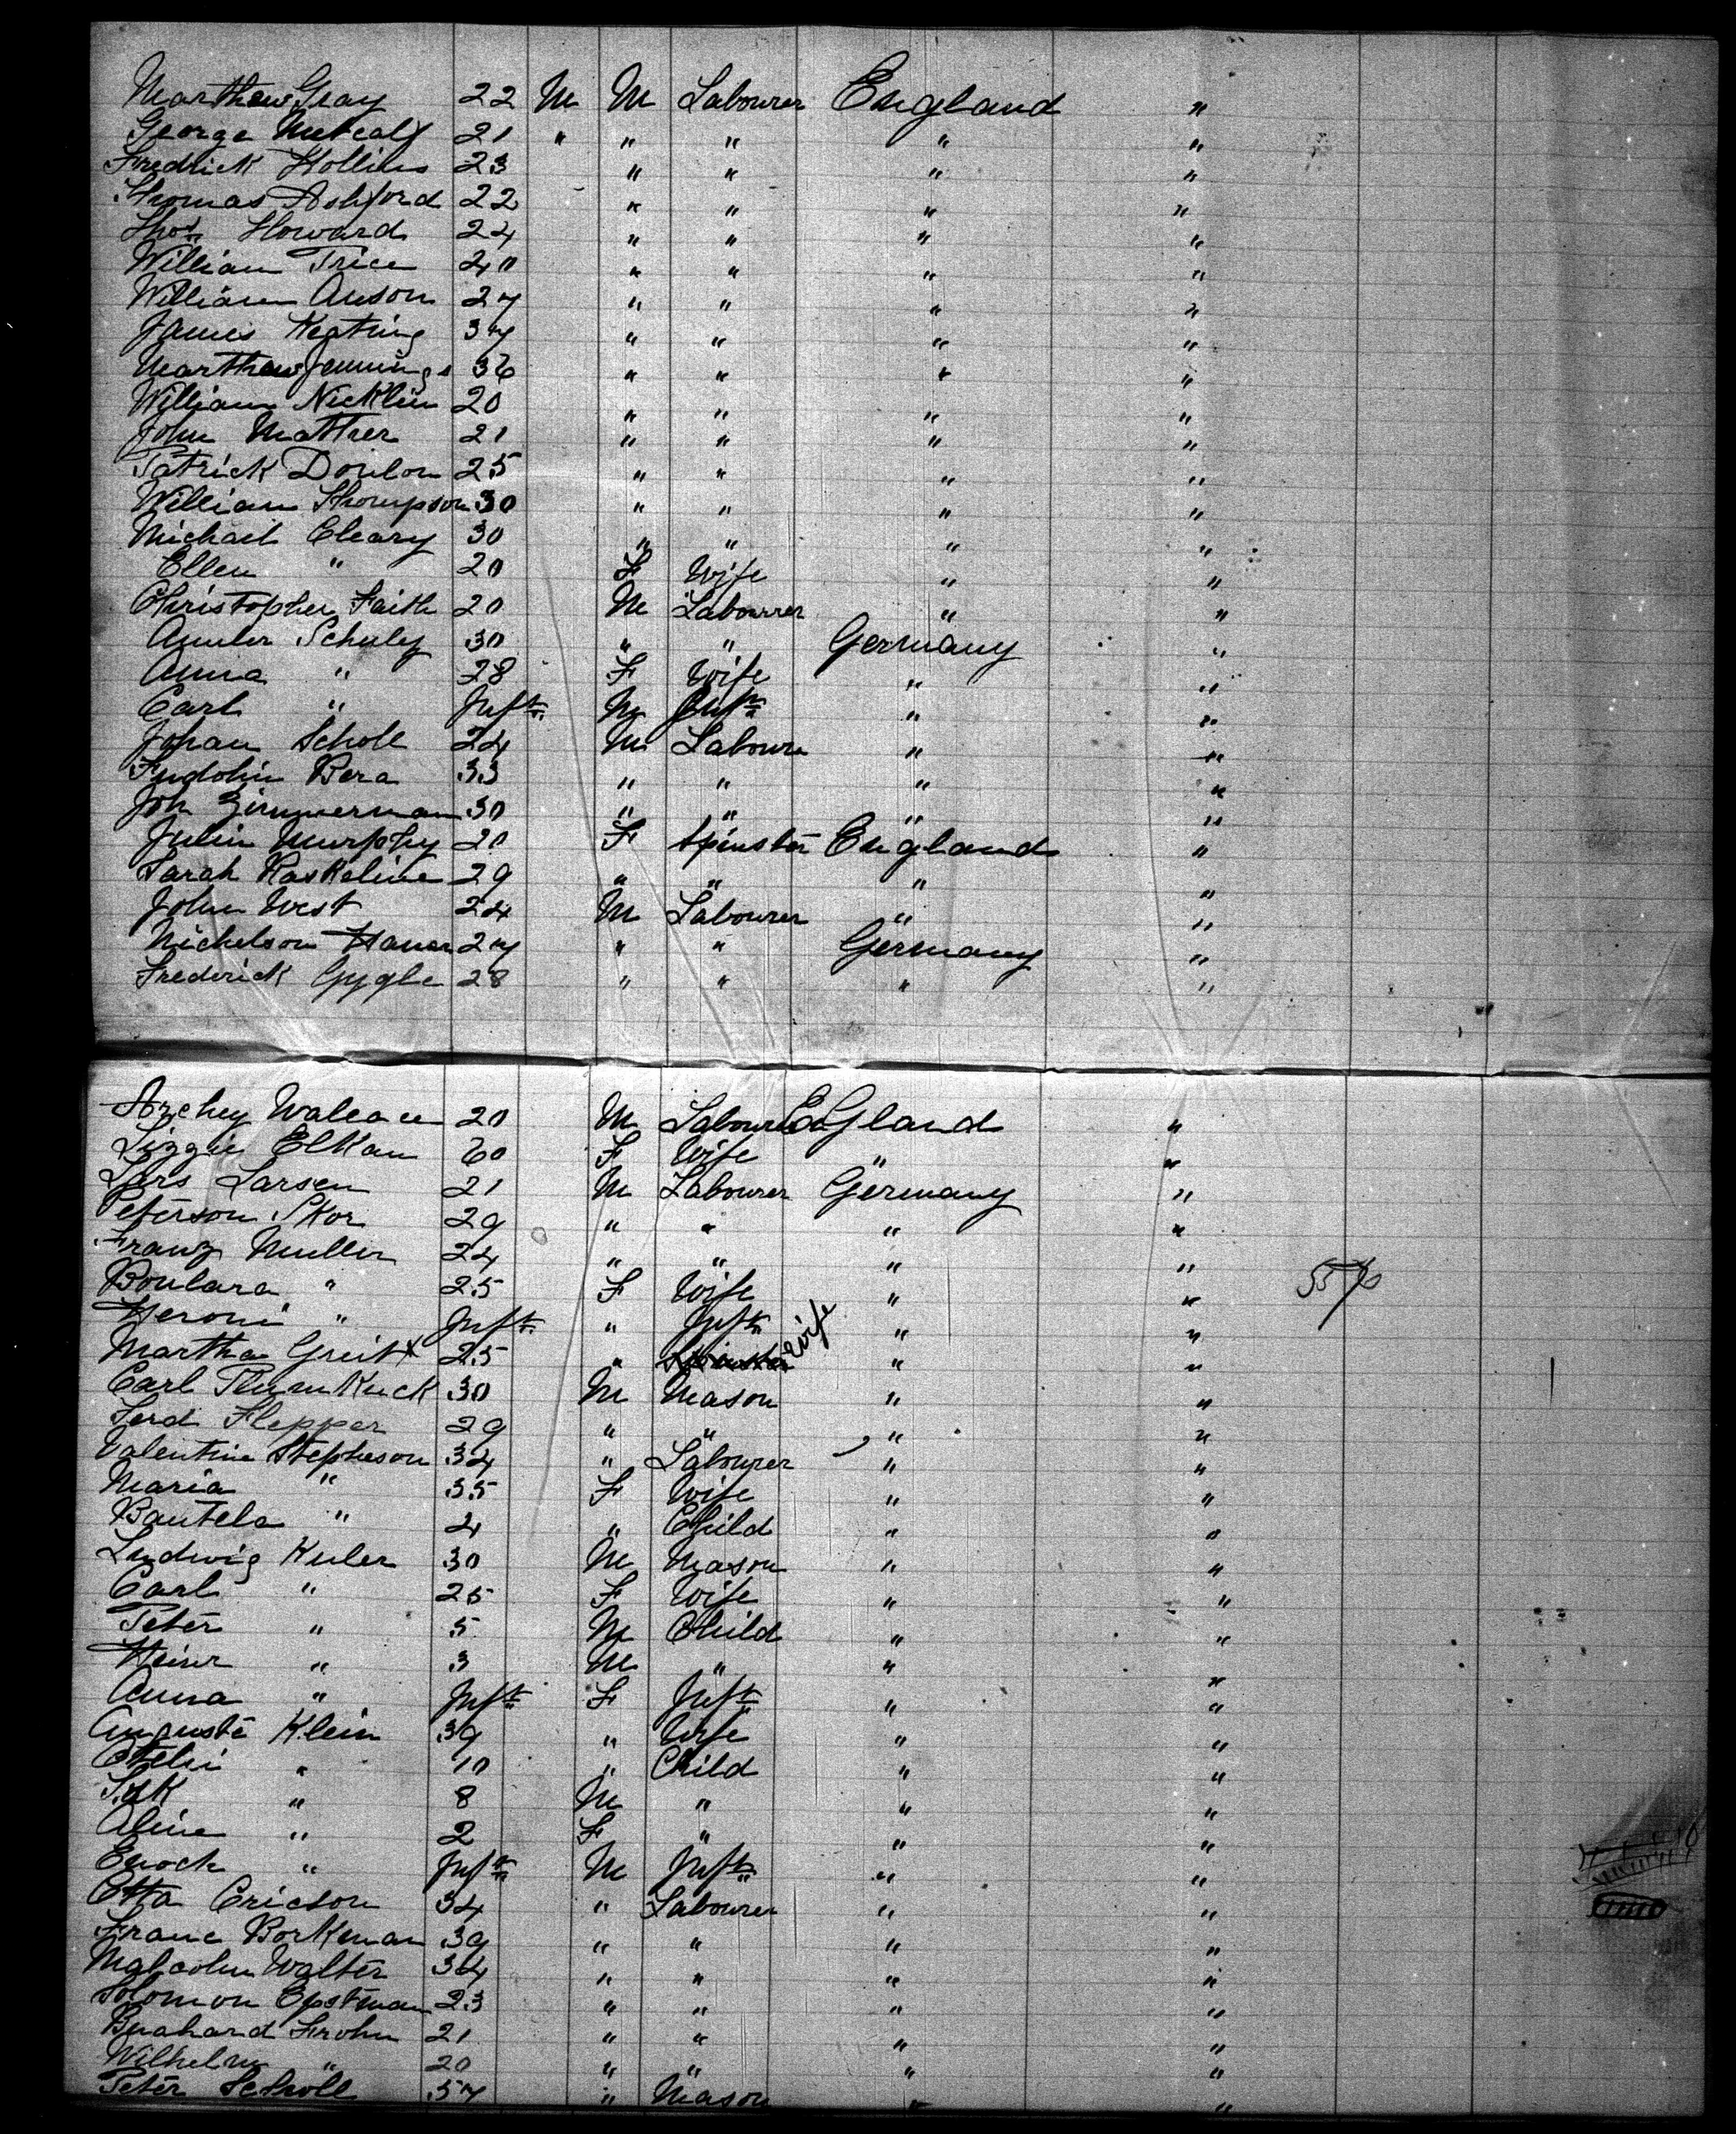 Marthew Gray 22 M M Labourer England "
George Metcalf 21 " " " " "
Fredrick Hollins 23 " " " "
Thomas Ashford 22 " " " "
Thos Howard 24 " " " "
William Price 40 " " " "
William Anson 27 " " " "
James Keating 37 " " " "
Marthew Jennings 36 " " " "
William Nicklin 20 " " " "
John Mather 21 " " " "
Patrick Donlon 25 " " " "
William Thompson 30 " " " "
Michail Cleary 30 " " " "
Ellen " 20 F Wife " "
Christopher Faith 20 M Labourer " "
Schuly 30 " " Germany "
Anna " 28 F Wife " "
Carl " Inft M Inft " "
Johan Scholl 24 M Labourer " "
Fridolin Bera 33 " " " "
Joh Zimmerman 30 " " " "
Julia Murphy 20 F Spinster England "
Sarah Kaskeline 29 " " " "
John West 24 M Labourer " "
Nichelson Hauer 27 " " Germany "
Frederick Gygle 28 " " " "
Archey Walcace 20 M Labourer England "
Lizzie Elkan 60 F Wife " "
Lars Larsen 21 M Labourer Germany "
Peterson Skor 29 " " " "
Franz Muller 24 " " " "
Boulara " 25 F Wife " "
Heroni " Inft " Inft " "
Martha Greit X 25 " Spinster Wife " "
Carl 30 M Mason " "
Ferd Flepper 29 " " " "
Valentine Stepheson 34 " Labourer " "
Maria " 35 F Wife " "
Bautela " 4 " Child " "
Ludwig Kuler 30 M Mason " "
Carl " 25 F Wife " "
Peter " 5 M Child " "
Heinr " 3 M " " "
Anna " Inft F Inft " "
Auguste Klein 39 " Wife " "
" 10 " Child " "
" 8 M " " "
Aline " 2 F " " "
Enoch " Inft M Inft " "
Otta Ericson 34 " Labourer " "
Franc Borkman 39 " " " "
Malcolm Walter 34 " " " "
Solomon Epstman 23 " " " "
Buahard Frohn 21 " " " "
Wilhelm " 20 " " " "
Peter Scholl 57 " Mason " "